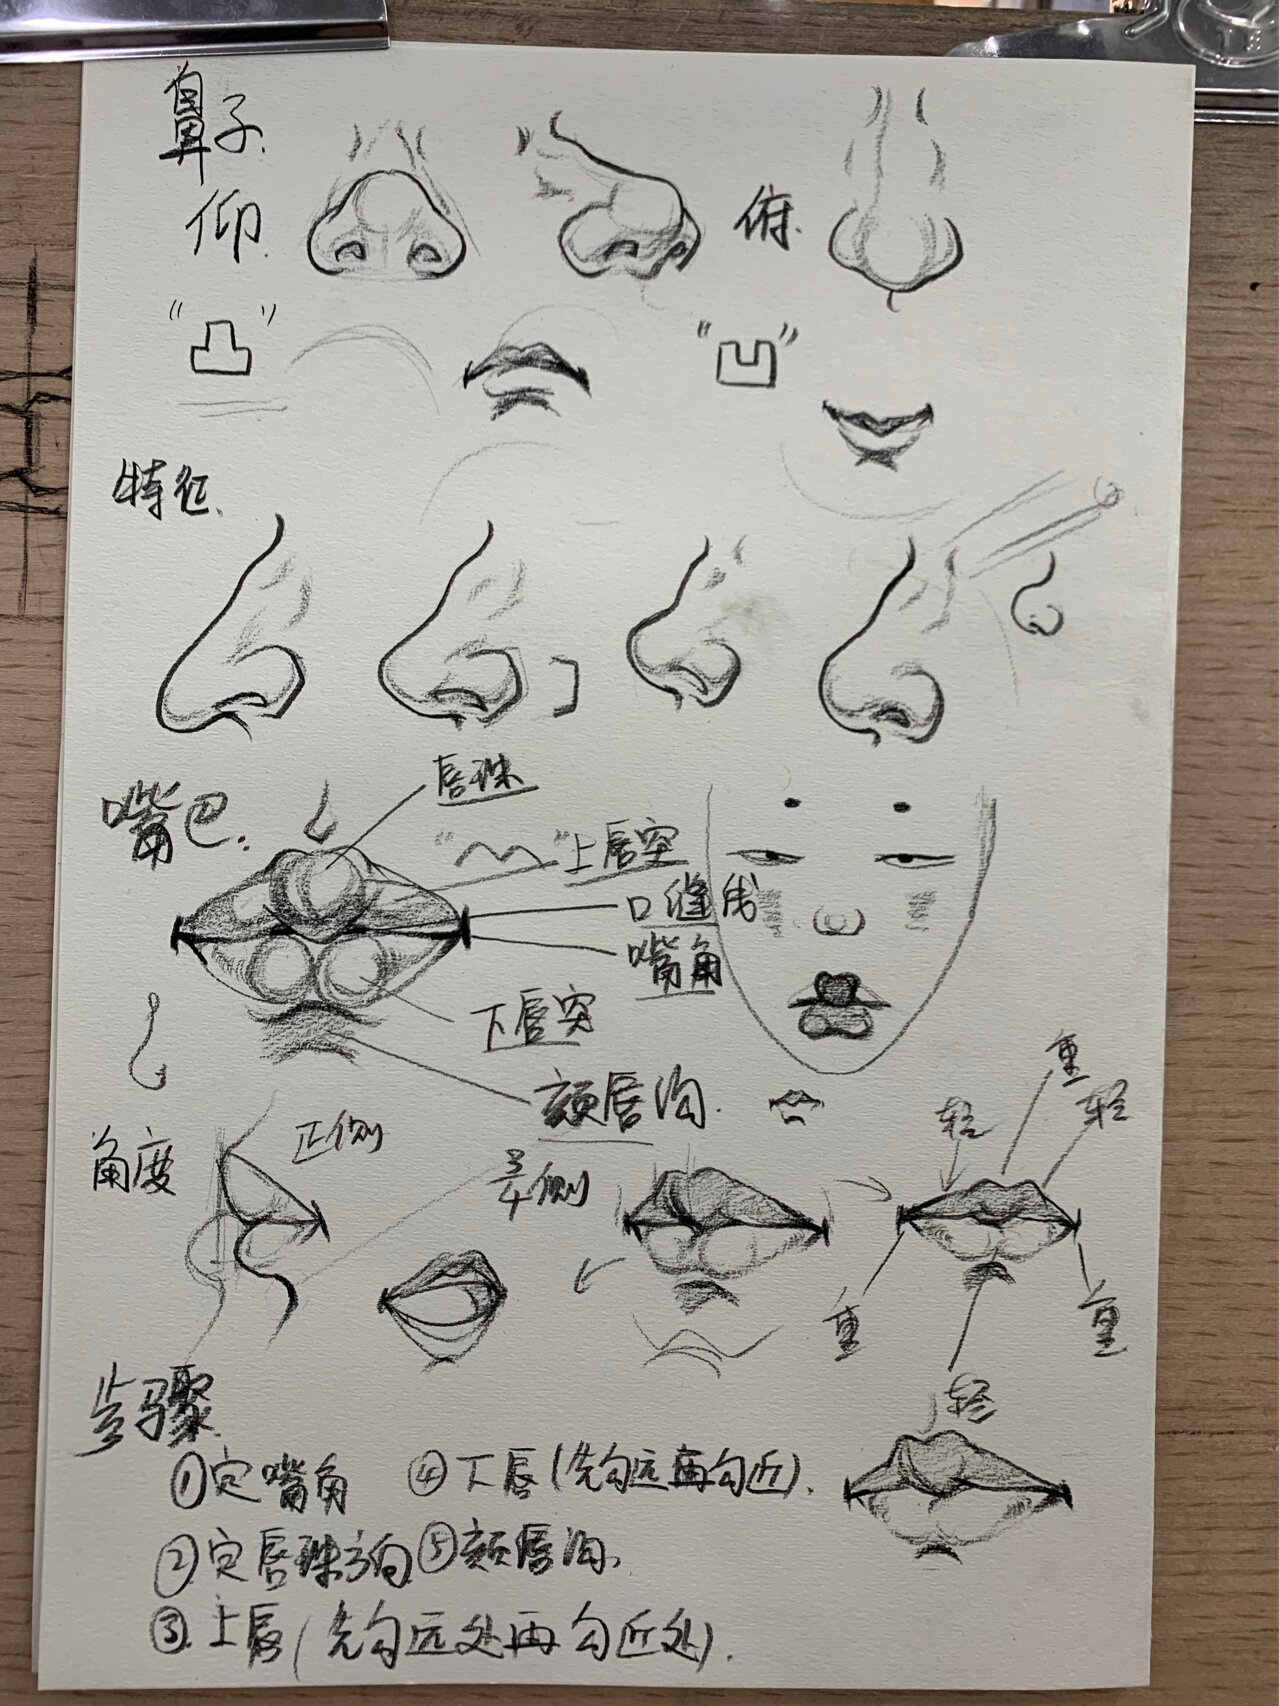 鼻子.
仰.
俯.
"凸"
"凹"
特征.
嘴巴.
唇珠
上唇突
口缝线
嘴角
下唇突
颏唇沟.
角度
正侧
3/4侧
重
轻
轻
重
重
轻
步骤.
①定嘴角
②定唇珠方向
③上唇(先勾远处再勾近处).
④下唇(先勾远再勾近).
⑤颏唇沟.